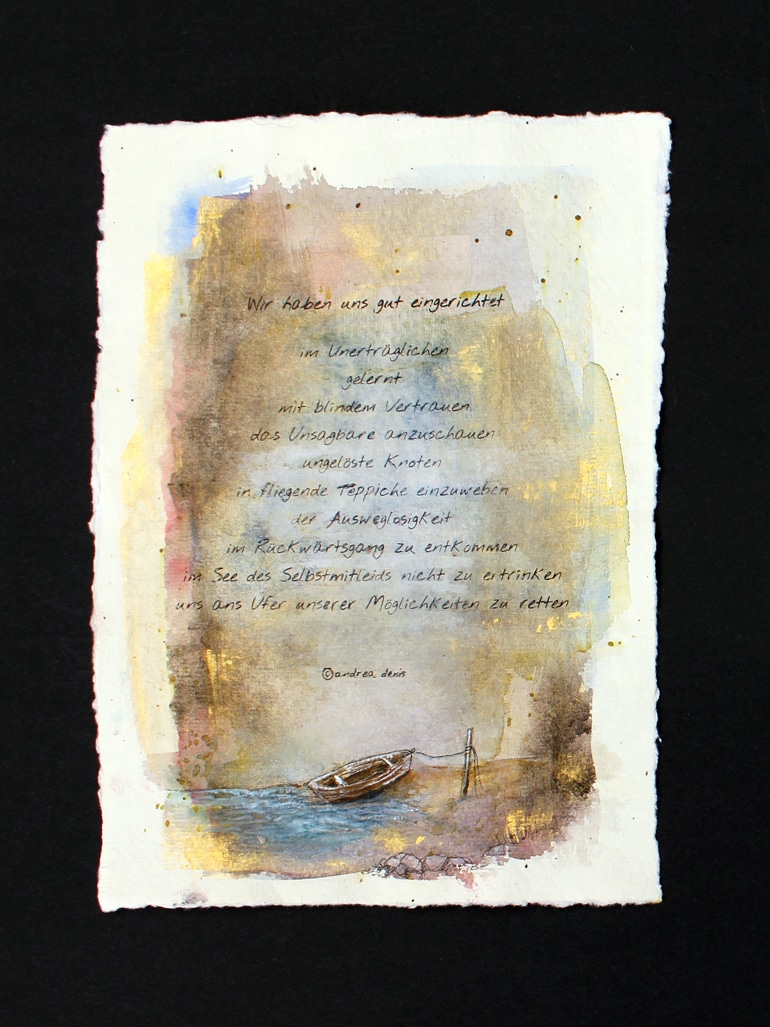 Wir haben uns gut eingerichtet
im Unerträglichen
gelernt
mit blindem Vertrauen
das Unsagbare anzuschauen
ungelöste Knoten
in fliegende Teppiche einzuweben
der Ausweglosigkeit
im Rückwärtsgang zu entkommen
im See des Selbstmitleids nicht zu ertrinken
uns ans Ufer unserer Möglichkeiten zu retten
©andrea denis